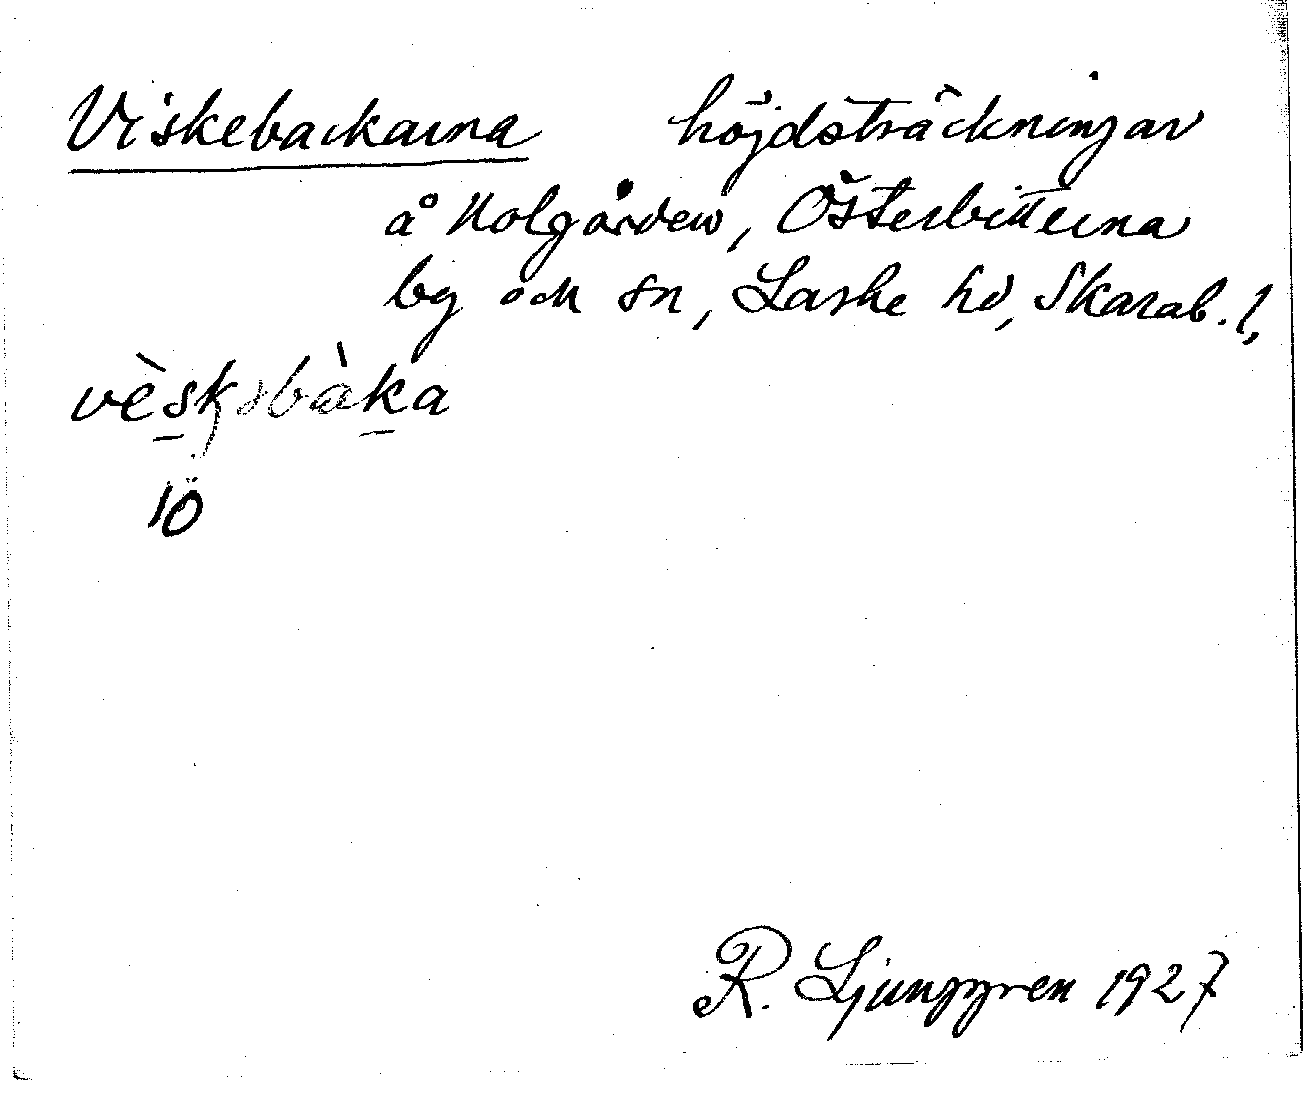 Viskebackarna höjdsträckningar
å Nolgården, Österbitterna
by och sn, Laske hd, Skarab. l,
vèskəbàka
10
R. Ljunggren 1927